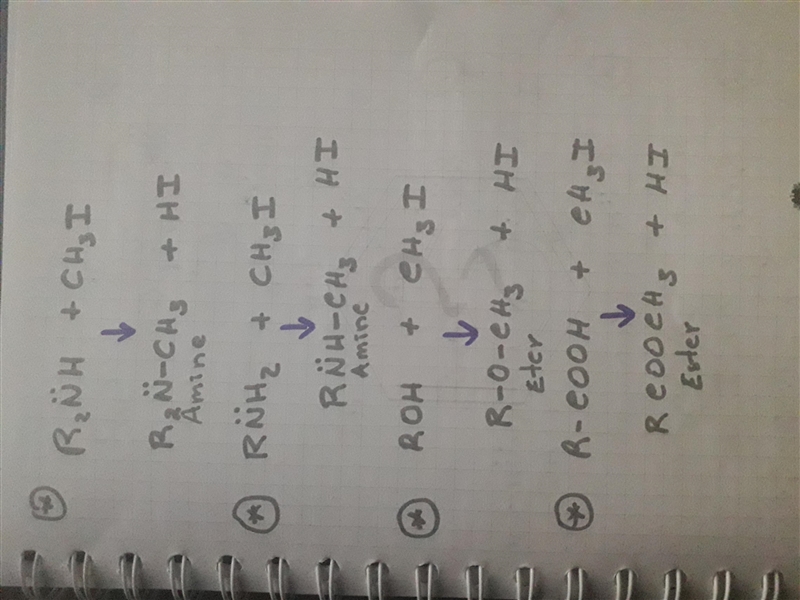 ⊛ R₂N̈H + CH₃I
↓
R₂N̈-CH₃ + HI
Amine
⊛ RN̈H₂ + CH₃I
↓
RN̈H-CH₃ + HI
Amine
⊛ ROH + CH₃I
↓
R-O-CH₃ + HI
Eter
⊛ R-COOH + CH₃I
↓
RCOOCH₃ + HI
Ester